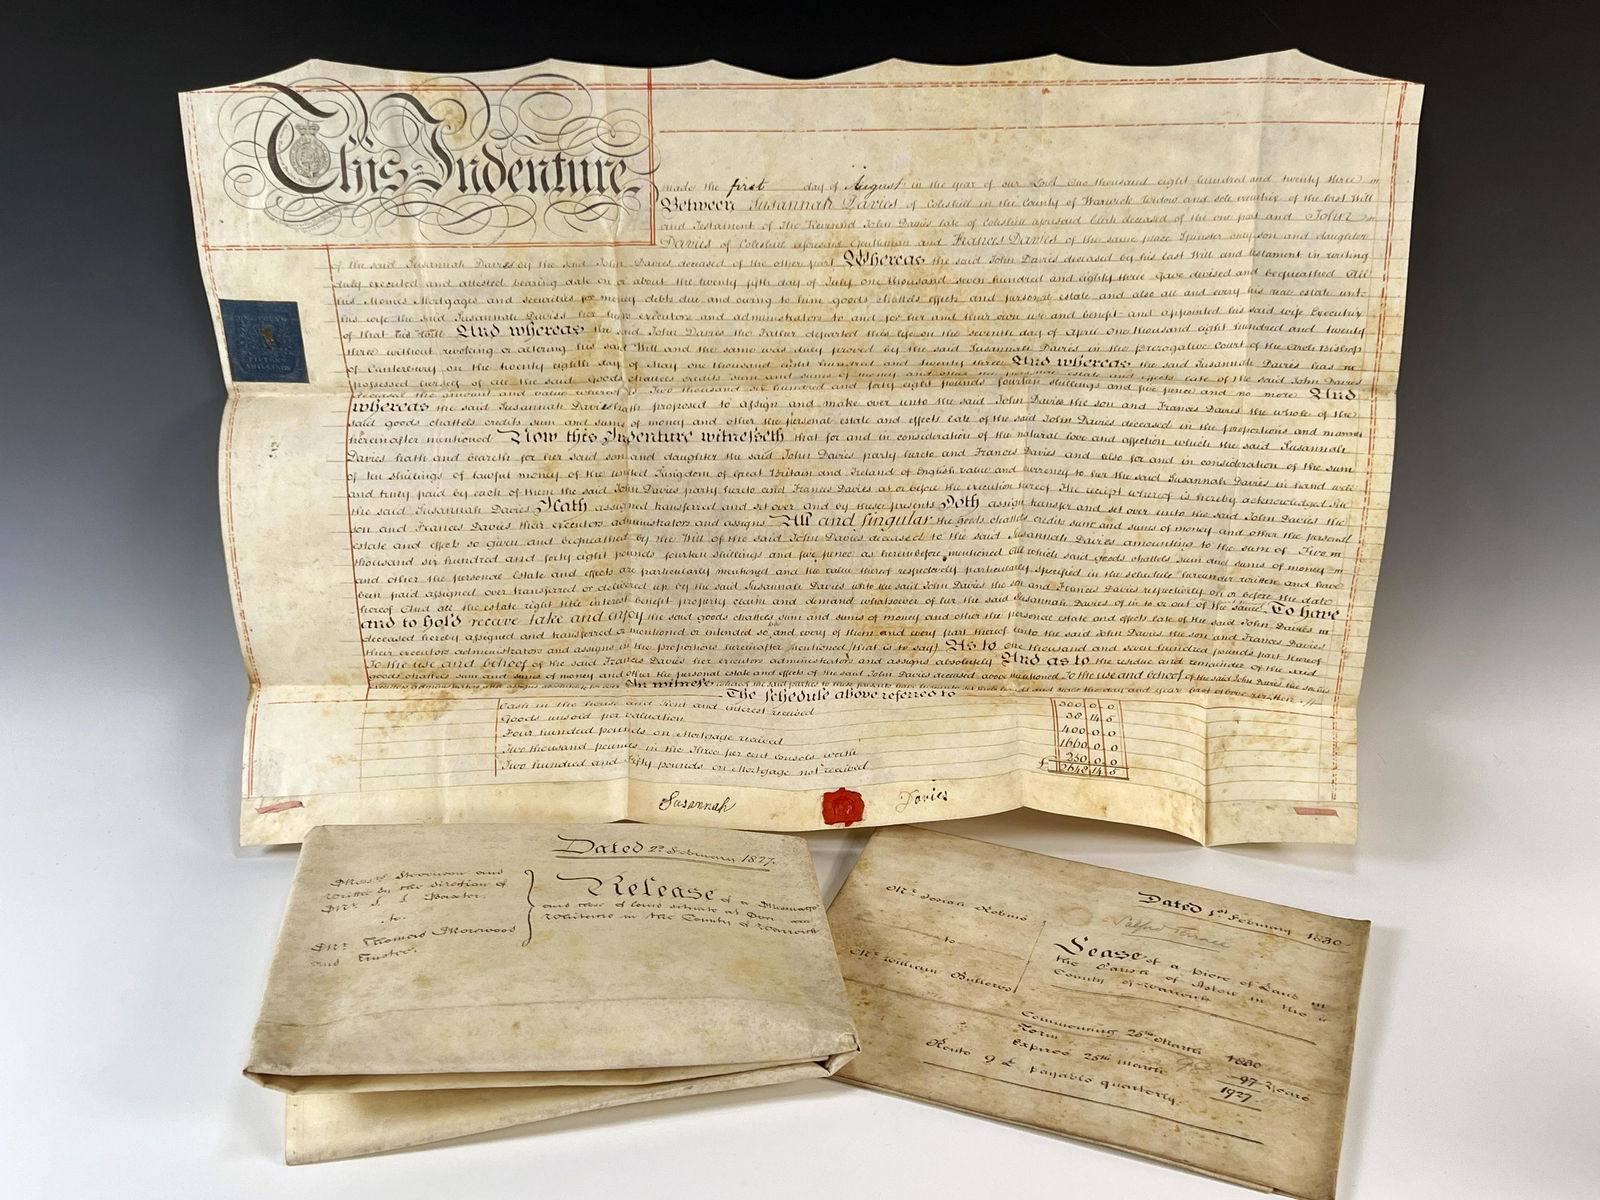 This Indenture
made the first day of August in the year of our Lord One thousand eight hundred and twenty three
Between Susannah Davies of Coleshill in the County of Warwick Widow and sole executrix of the last Will
and Testament of The Reverend John Davies late of Coleshill aforesaid Clerk deceased of the one part and John
Davies of Coleshill aforesaid Gentleman and Frances Davies of the same place Spinster only son and daughter
of the said Susannah Davies by the said John Davies deceased of the other part Whereas the said John Davies deceased by his last Will and testament in writing
duly executed and attested bearing date on or about the twenty fifth day of July one thousand seven hundred and eighty three Gave devised and bequeathed All
his Monies Mortgages and Securities for money debts due and owing to him goods chattels effects and personal estate and also all and every his real estate unto
his wife the said Susannah Davies her heirs executors and administrators to and for her and their own use and benefit and appointed his said wife Executrix
of that his Will And whereas the said John Davies the Father departed this life on the seventh day of April One thousand eight hundred and twenty
three without revoking or altering his said Will and the same was duly proved by the said Susannah Davies in the Prerogative Court of the Arch Bishop
of Canterbury on the twenty eighth day of May one thousand eight hundred and twenty three And whereas the said Susannah Davies has
possessed herself of all the said goods chattels credits sum and sums of money and other the personal estate and effects late of the said John Davies
deceased the amount and value whereof is Two thousand six hundred and forty eight pounds fourteen shillings and five pence and no more And
whereas the said Susannah Davies hath proposed to assign and make over unto the said John Davies the son and Frances Davies the whole of the
said goods chattels credits sum and sums of money and other the personal estate and effects late of the said John Davies deceased in the proportions and manner
hereinafter mentioned Now this Indenture witnesseth that for and in consideration of the natural love and affection which the said Susannah
Davies hath and beareth for her said son and daughter the said John Davies party hereto and Frances Davies and also for and in consideration of the sum
of ten shillings of lawful money of the united Kingdom of Great Britain and Ireland of English value and currency to her the said Susannah Davies in hand well
and truly paid by each of them the said John Davies party hereto and Frances Davies at or before the execution hereof The receipt whereof is hereby acknowledged She
the said Susannah Davies Hath assigned transferred and set over and by these presents Doth assign transfer and set over unto the said John Davies the
son and Frances Davies their executors administrators and assigns All and singular the goods chattels credits sum and sums of money and other the personal
estate and effects so given and bequeathed by the Will of the said John Davies deceased to the said Susannah Davies amounting to the sum of Two
thousand six hundred and forty eight pounds fourteen shillings and five pence as hereinbefore mentioned All which said goods chattels sum and sums of money
and other the personal Estate and effects are particularly mentioned and the value thereof respectively particularly specified in the schedule hereunder written and have
been paid assigned over transferred or delivered up by the said Susannah Davies unto the said John Davies the son and Frances Davies respectively on or before the date
hereof And all the estate right title interest benefit property claim and demand whatsoever of her the said Susannah Davies of in to or out of the same To have
and to hold receive take and enjoy the said goods chattels sum and sums of money and other the personal estate and effects late of the said John Davies
deceased hereby assigned and transferred or mentioned or intended so to be and every of them and every part thereof unto the said John Davies the son and Frances Davies
their executors administrators and assigns in the proportions hereinafter mentioned (that is to say) As to one thousand and seven hundred pounds part thereof
To the use and behoof of the said Frances Davies her executors administrators and assigns absolutely And as to the residue and remainder of the said
goods chattels sum and sums of money and other the personal estate and effects of the said John Davies deceased above mentioned To the use and behoof of the said John Davies the son his
executors administrators and assigns absolutely for ever In witness whereof the said parties to these presents have hereunto set their hands and seals the day and year first above written
The Schedule above referred to
Cash in the house and Rent and interest received 300 0 0
Goods unsold per valuation 38 14 5
Four hundred pounds on Mortgage received 400 0 0
Two thousand pounds in the Three per cent consols worth 1660 0 0
Two hundred and Fifty pounds on Mortgage not received 250 0 0
£ 2648 14 5
Susannah Davies
Dated 2d February 1827.
Messrs Stevenson and
by the direction of
Mr
to
Mr Thomas Morewood
and Trustee.
Release of a Messuage
and of land situate at
in the County of Warwick
Dated 1st February 1830
Mr Josiah Robins
to
Mr William
Terrace
Lease of a Piece of Land in
the Parish of Aston in the
County of Warwick
Commencing 25th March 1830
Term 97 Years
Expires 25th March 1927
Rent 9 £ payable quarterly.